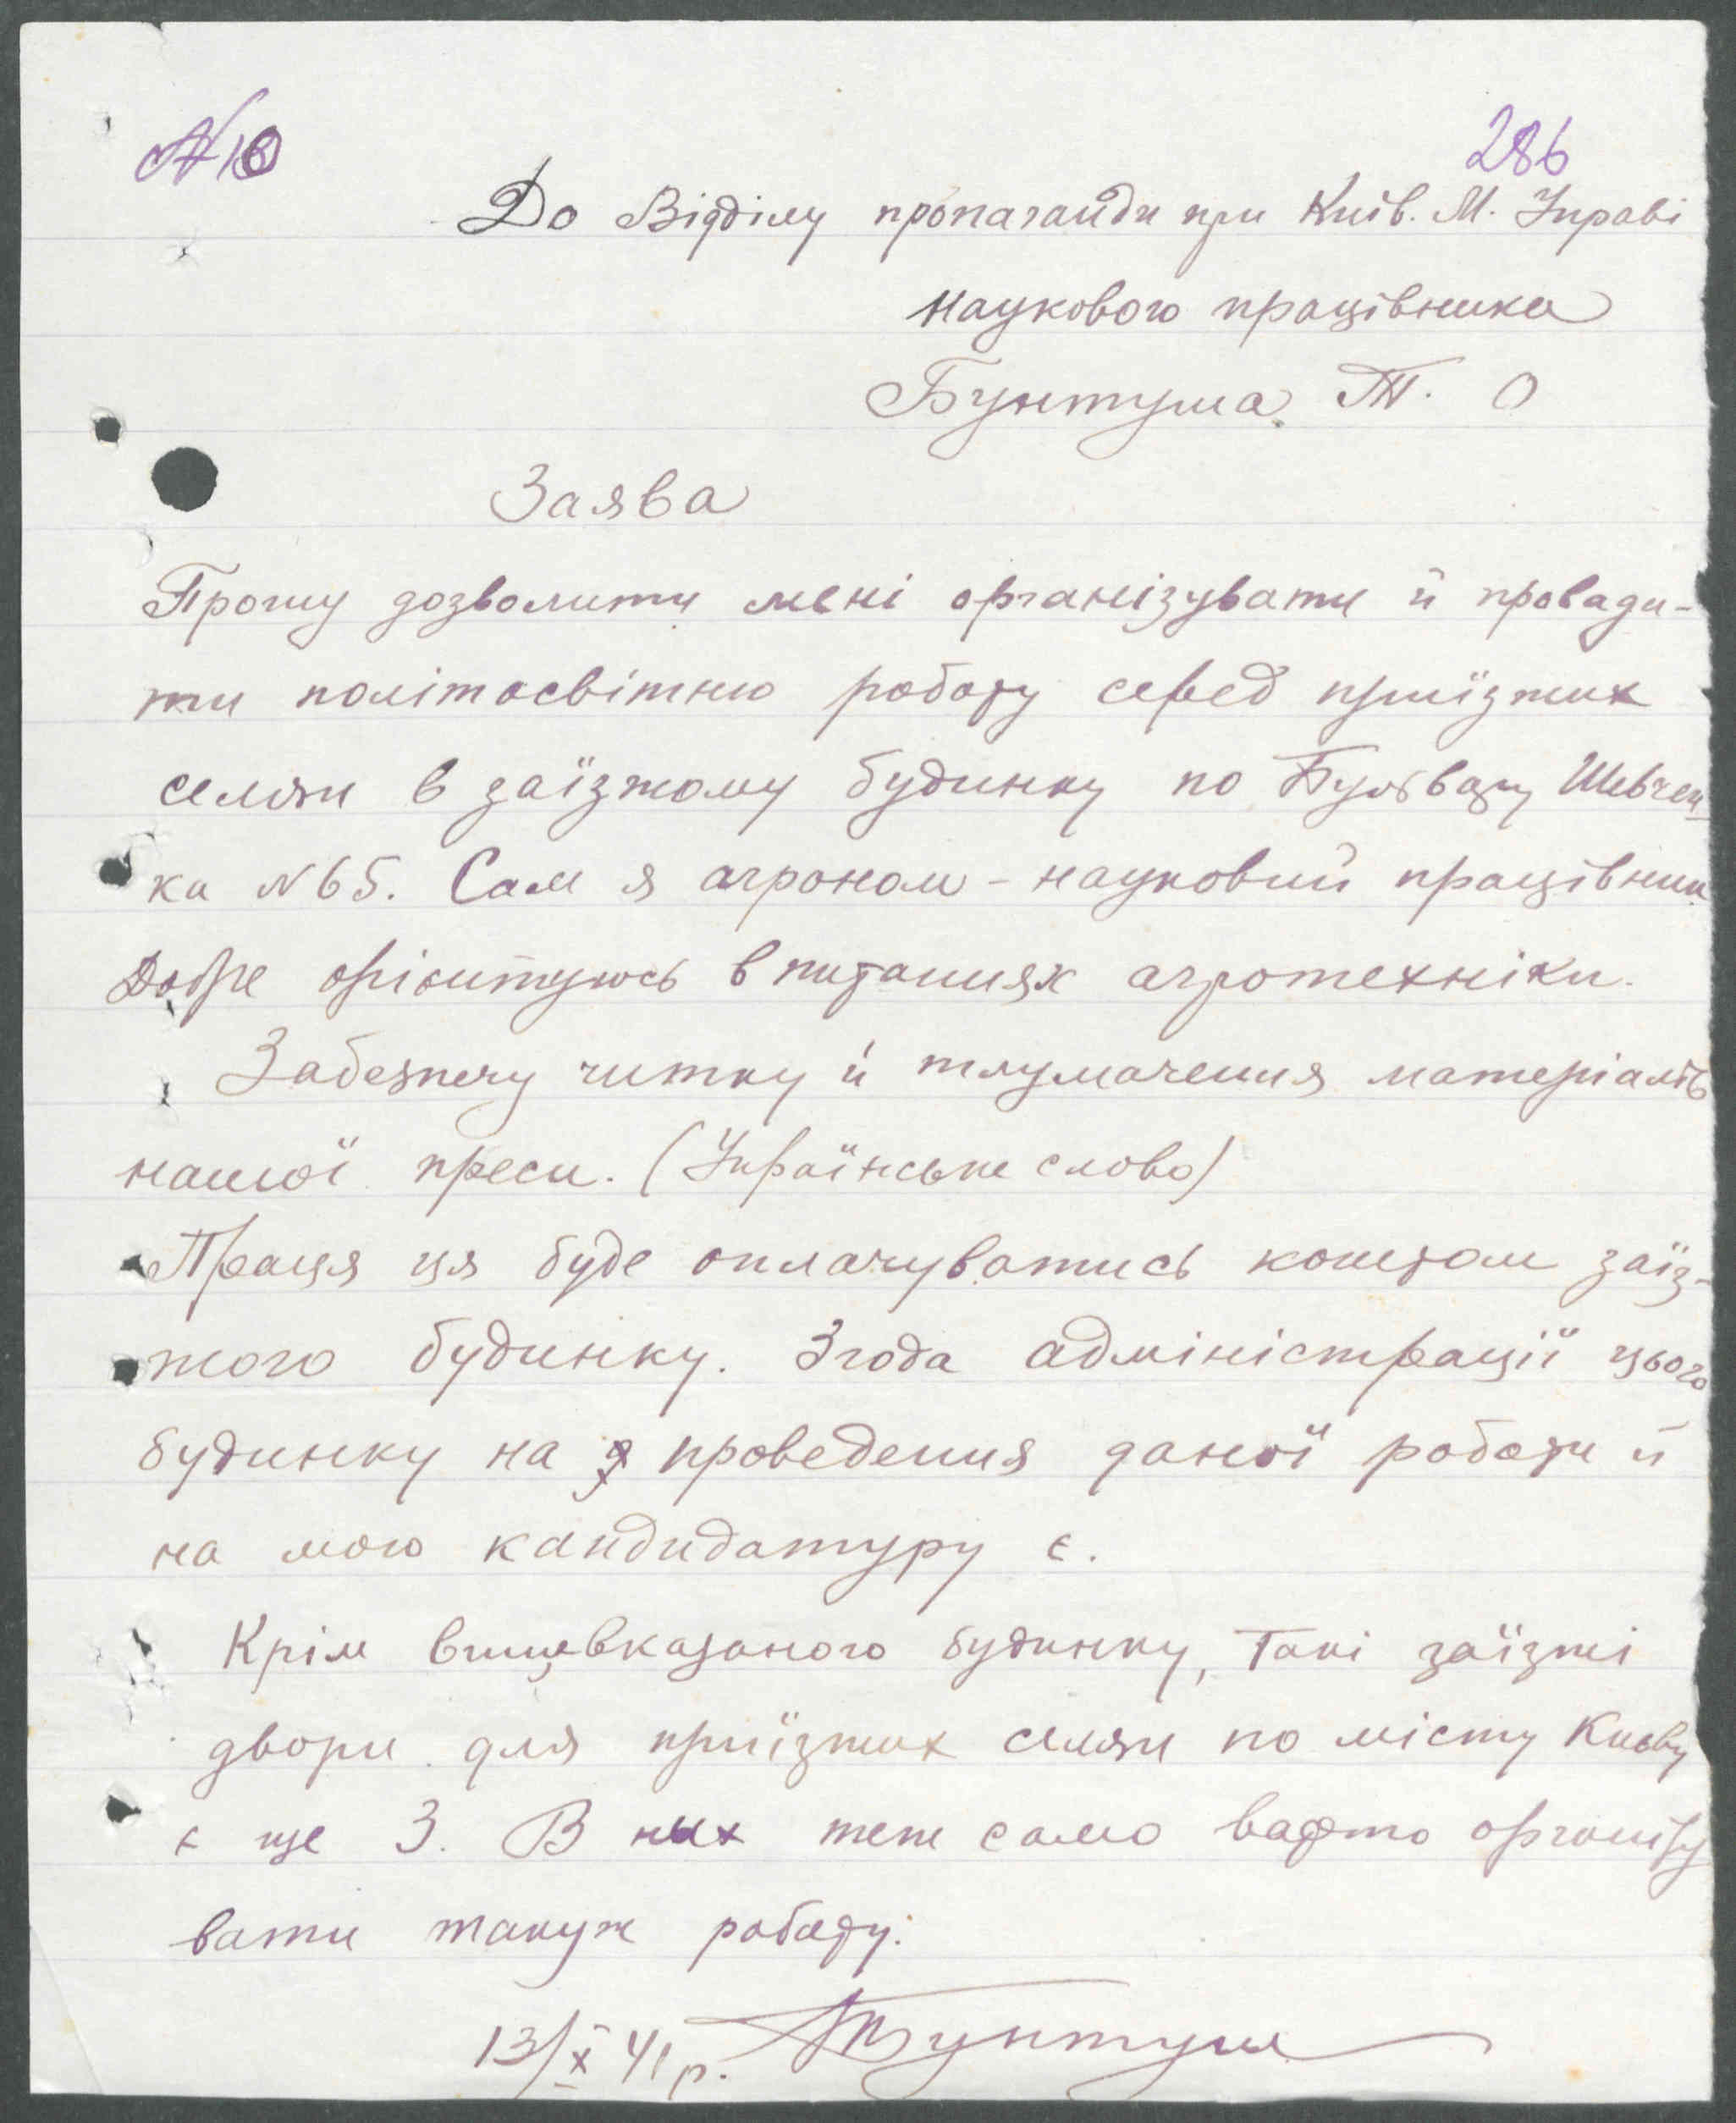 № 10
286
До Відділу пропаганди при Київ. М. Управі
Наукового працівника
Бунтуша Т. О
Заява
Прошу дозволити мені організувати й провади-
ти політосвітню роботу серед приїзжих
селян в заїзжому будинку по Бульвару Шевчен-
ка N 65. Сам я агроном - науковий працівник
Добре орієнтуюсь в питаннях агротехніки.
Забезпечу читку й тлумачення матеріалів
нашої преси. (Українське слово)
Праця ця буде оплачуватись коштом заїз-
жого будинку. Згода адміністрації цього
будинку на проведення даної роботи й
на мою кандидатуру є.
Крім вищевказаного будинку, такі заїзжі
двори для приїзжих селян по місту Києву
є ще 3. В них теж само варто організу
вати такуж роботу.
13/X 41 р. Бунтуш